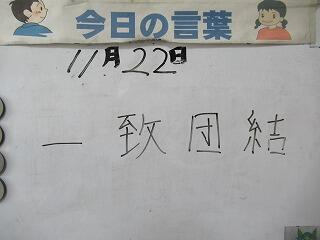 今日の言葉
11月22日
一致団結